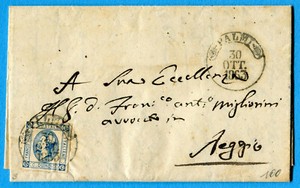 PALMI
30
OTT.
1863
A Sua Eccellen
Il S. d. Franc.co Ant.o Migliorini
avvocato in
Reggio
160